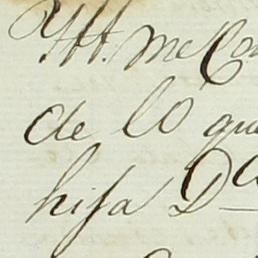 me Co
de lo que
hija D.a